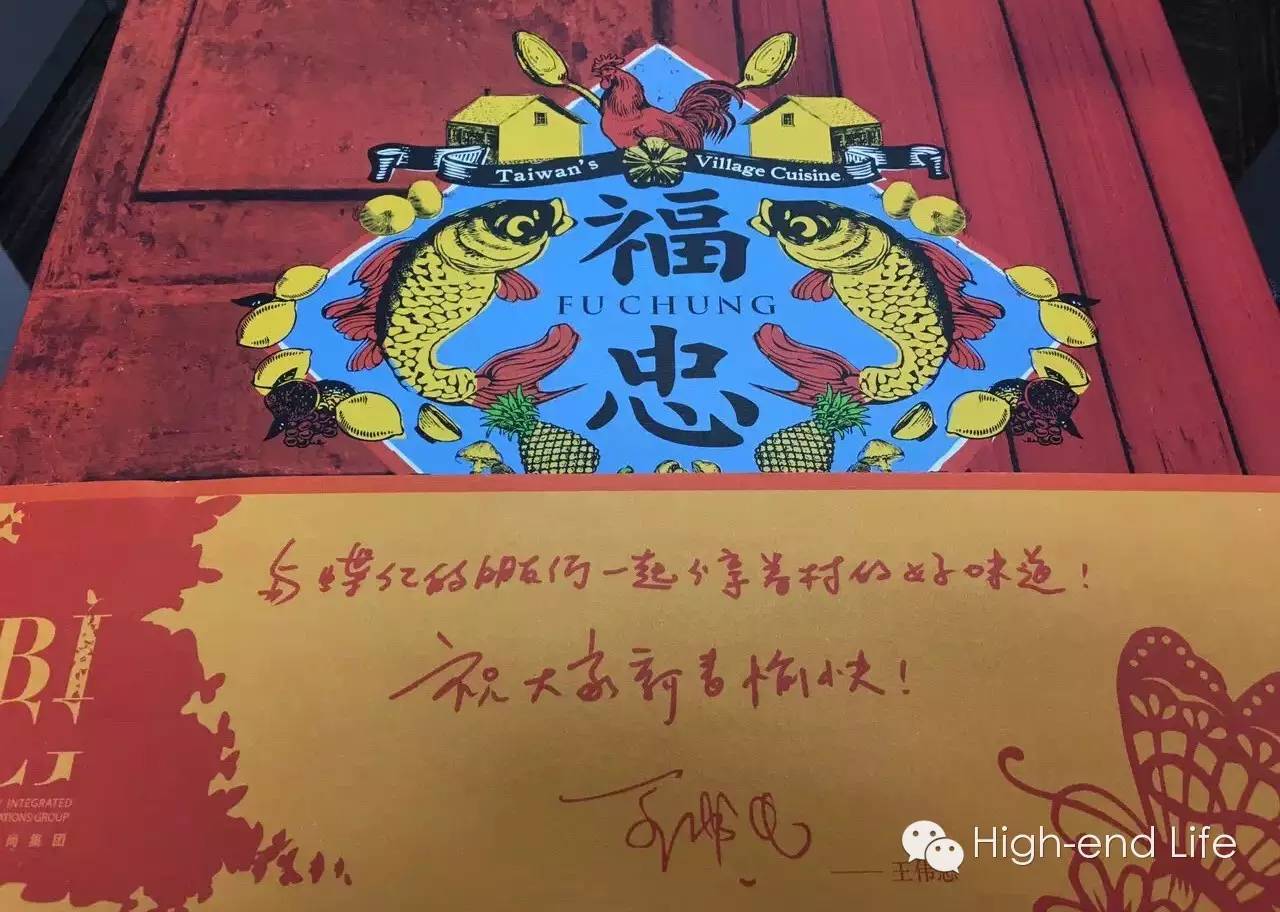 Taiwan's Village Cuisine
福
FU CHUNG
忠
与蝶亿的朋友们一起分享眷村的好味道！
祝大家新春愉快！
BI
G
INTEGRATED
ATIONS GROUP
尚集团
—— 王伟忠
High-end Life